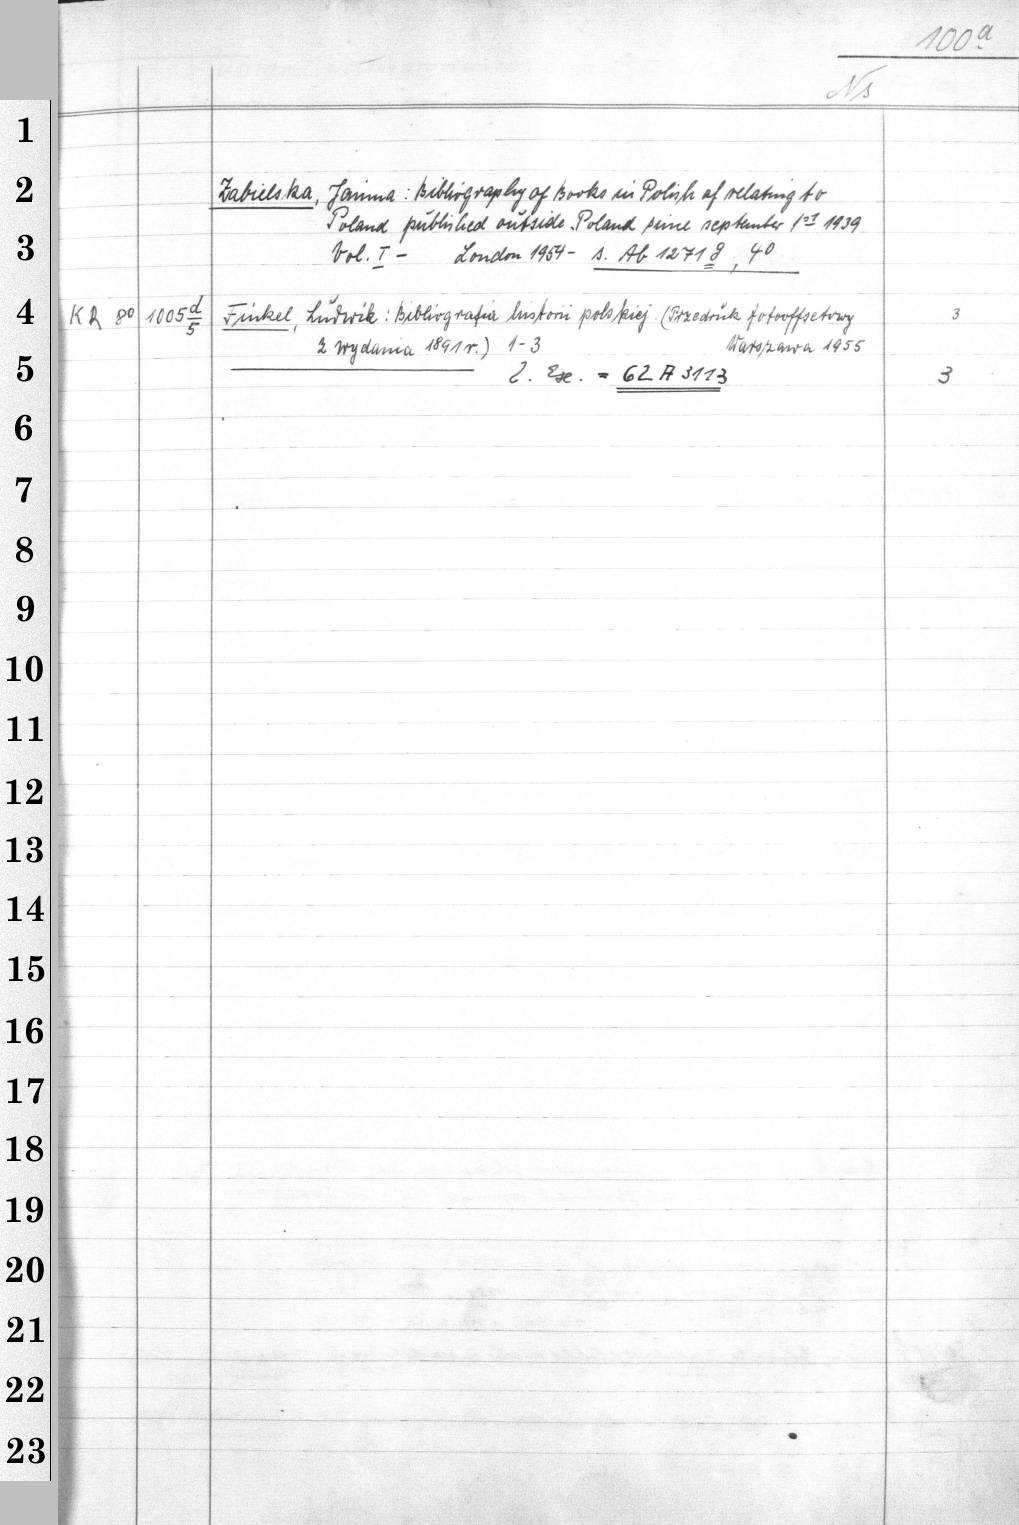 100a
Ns
1
2 Zabielska, Janina: Bibliography of Books in Polish of relating to
Poland published outside Poland since september 1st 1939
3 Vol. I - London 1954- s. Ab 12718, 40
4 KR 80 1005 d/5 Finkel, Ludwik: Bibliografia historii polskiej. (Przedruk fotooffsetowy 3
z wydania 1891 r.) 1-3 Warszawa 1955
5 2. Ex. = 62 A 3113 3
6
7
8
9
10
11
12
13
14
15
16
17
18
19
20
21
22
23